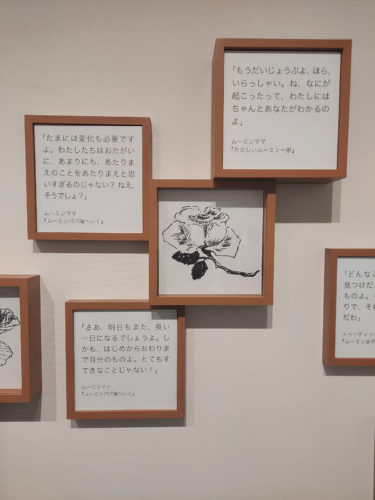 「もうだいじょうぶよ。ほら、
いらっしゃい。ね、なにが
起こったって、わたしには
ちゃんとあなたがわかるの
よ」
ムーミンママ
『たのしいムーミン一家』
「たまには変化も必要です
よ。わたしたちはおたがい
に、あまりにも、あたりま
えのことをあたりまえと思
いすぎるのじゃない？ねえ、
そうでしょ？」
ムーミンママ
『ムーミンパパ海へいく』
「さあ、明日もまた、長い
一日になるでしょうよ。し
かも、はじめからおわりま
で自分のものよ。とてもす
てきなことじゃない！」
ムーミンママ
『ムーミンパパ海へいく』
「どんなこ
見つけだ
ものよ。
りで、それ
だわ」
トゥーティッ
『ムーミン谷の